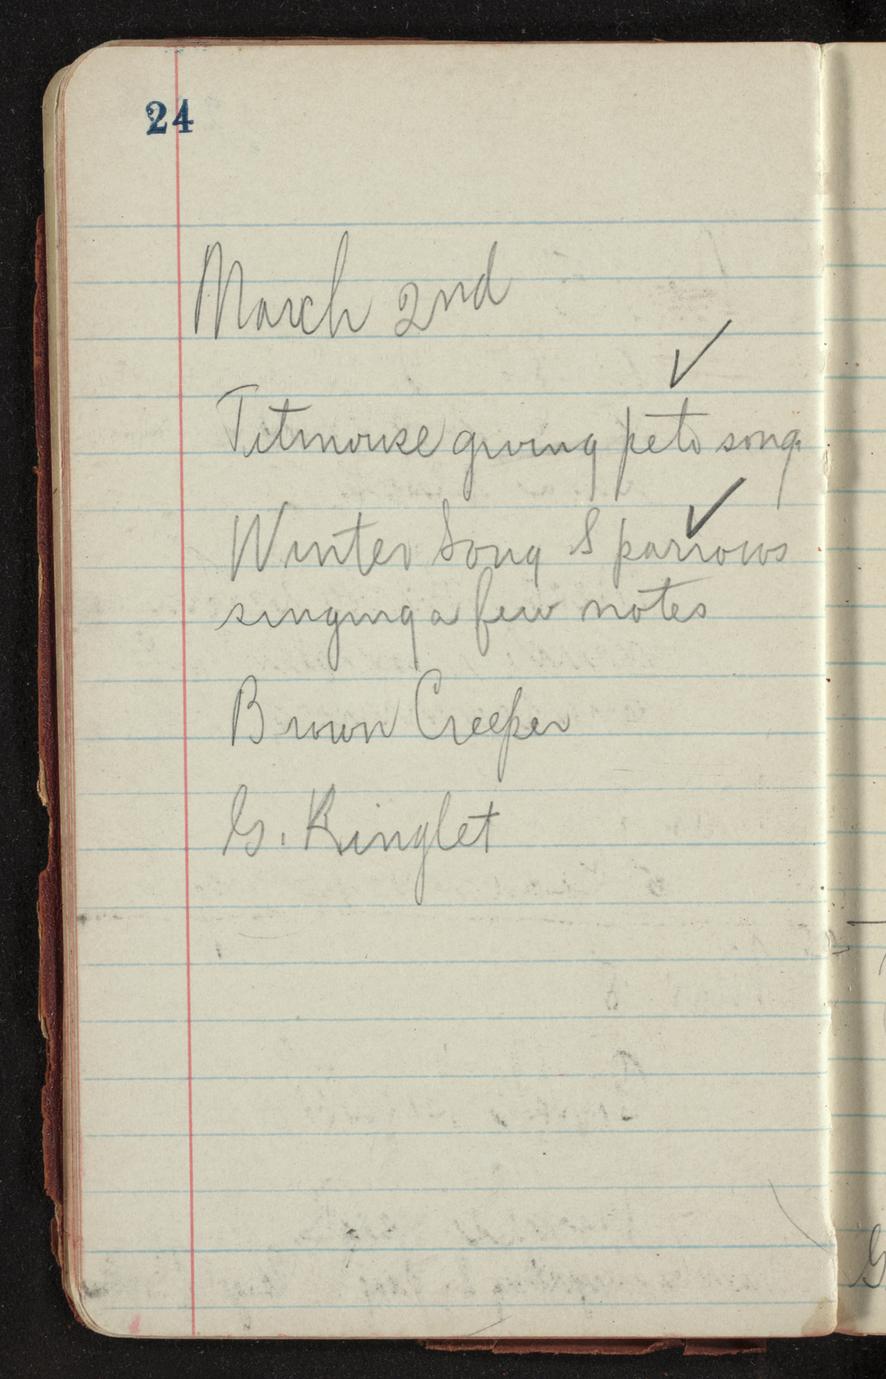 24
March 2nd
✓
Titmouse giving peto song
✓
Winter Song Sparrows
singing a few notes
Brown Creeper
G. Kinglet